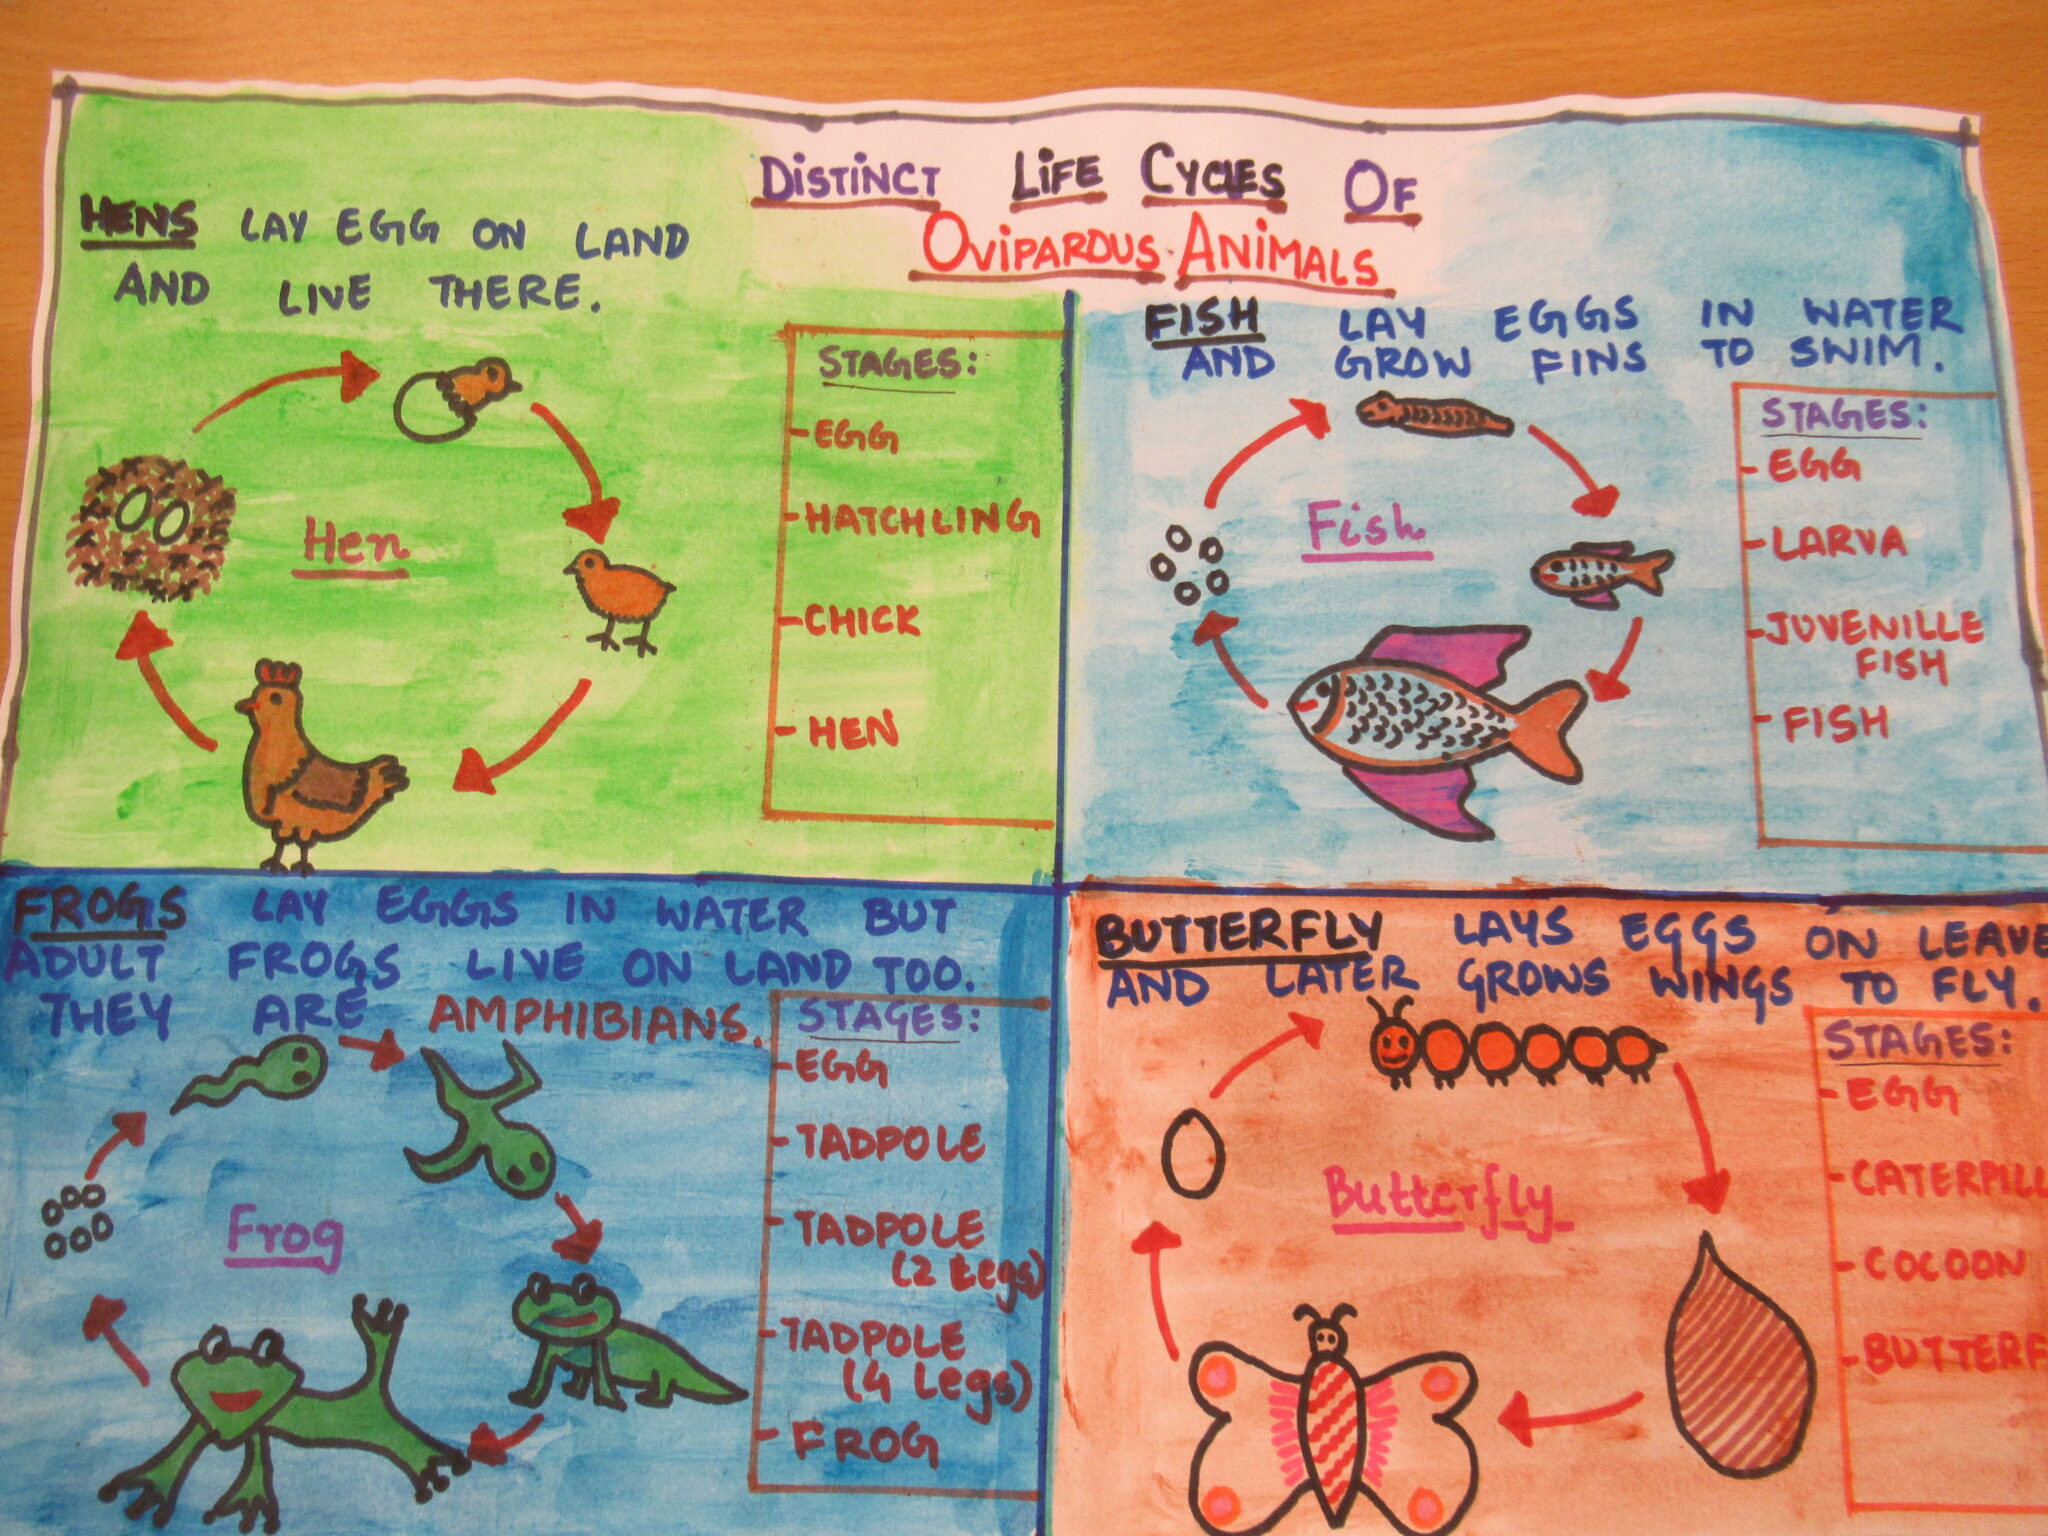 DISTINCT LIFE CYCLES OF
OVIPAROUS ANIMALS
HENS LAY EGG ON LAND
AND LIVE THERE.
Hen
STAGES:
-EGG
-HATCHLING
-CHICK
-HEN
FISH LAY EGGS IN WATER
AND GROW FINS TO SWIM.
Fish
STAGES:
-EGG
-LARVA
-JUVENILLE
FISH
-FISH
FROGS LAY EGGS IN WATER BUT
ADULT FROGS LIVE ON LAND TOO.
THEY ARE AMPHIBIANS.
Frog
STAGES:
-EGG
-TADPOLE
-TADPOLE
(2 Legs)
-TADPOLE
(4 Legs)
-FROG
BUTTERFLY LAYS EGGS ON LEAVE
AND LATER GROWS WINGS TO FLY.
Butterfly
STAGES:
-EGG
-CATERPILL
-COCOON
-BUTTERF